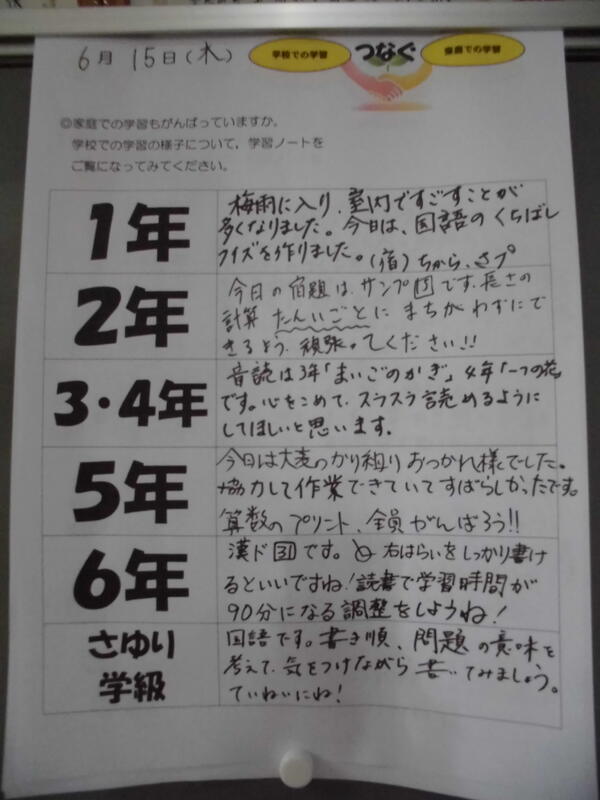 6月 15日(木)
学校での学習 つなぐ 家庭での学習
◎家庭での学習もがんばっていますか。
学校での学習の様子について，学習ノートを
ご覧になってみてください。
1年
梅雨に入り、室内ですごすことが
多くなりました。今日は、国語のくちばし
クイズを作りました。(宿)ちから、さプ
2年
今日の宿題は、サンプ⑤です。長さの
計算 たんいごとに まちがわずにで
きるよう、頑張ってください!!
3・4年
音読は3年「まいごのかぎ」4年「一つの花」
です。心をこめて、スラスラ読めるように
してほしいと思います。
5年
今日は大麦のかり組りおつかれ様でした。
協力して作業できていてすばらしかったです。
算数のプリント、全員がんばろう!!
6年
漢ド31です。右はらいをしっかり書け
るといいですね!読書で学習時間が
90分になる調整をしようね!
さゆり
学級
国語です。書き順、問題の意味を
考えて、気をつけながら書いてみましょう。
ていねいにね!